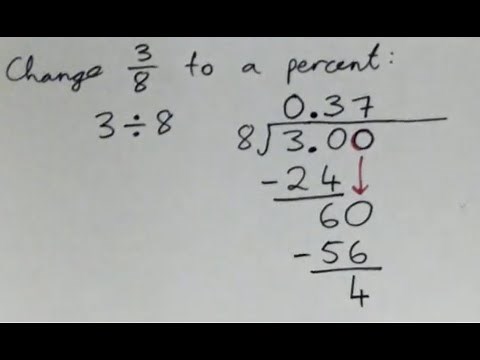 Change 3/8 to a percent:
3÷8
0.37
8)3.00
-24
60
-56
4